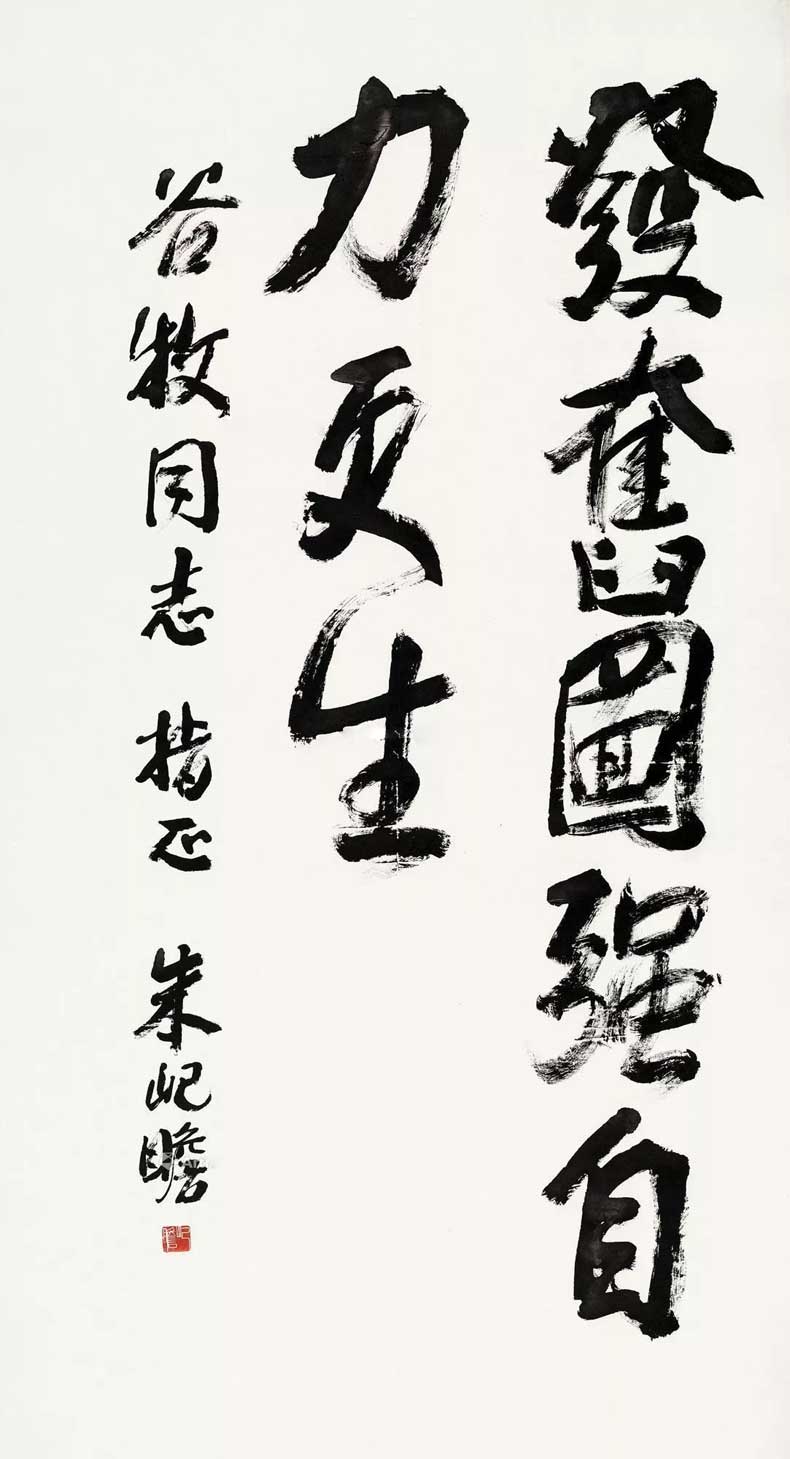 發奮圖强自
力更生
谷牧同志 指正 朱屺瞻
屺瞻